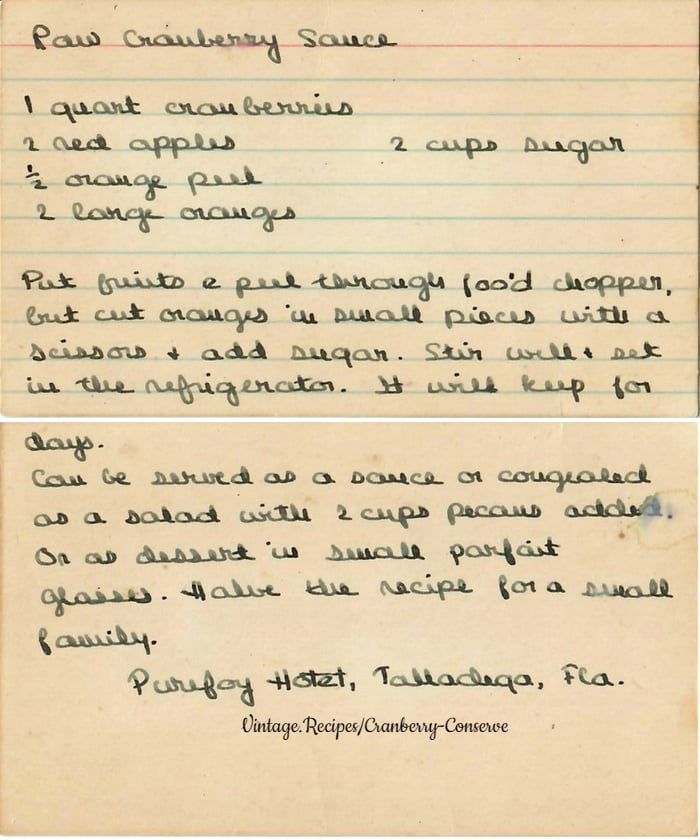 Paw Cranberry Sauce
1 quart cranberries
2 red apples 2 cups sugar
½ orange peel
2 large oranges
Put fruits & peel through food chopper,
but cut oranges in small pieces with a
scissors & add sugar. Stir well & set
in the refrigerator. It will keep for
days.
Can be served as a sauce or congealed
as a salad with 2 cups pecans added.
Or as dessert in small parfait
glasses. Halve the recipe for a small
family.
Purefoy Hotel, Talladega, Fla.
Vintage.Recipes/Cranberry-Conserve